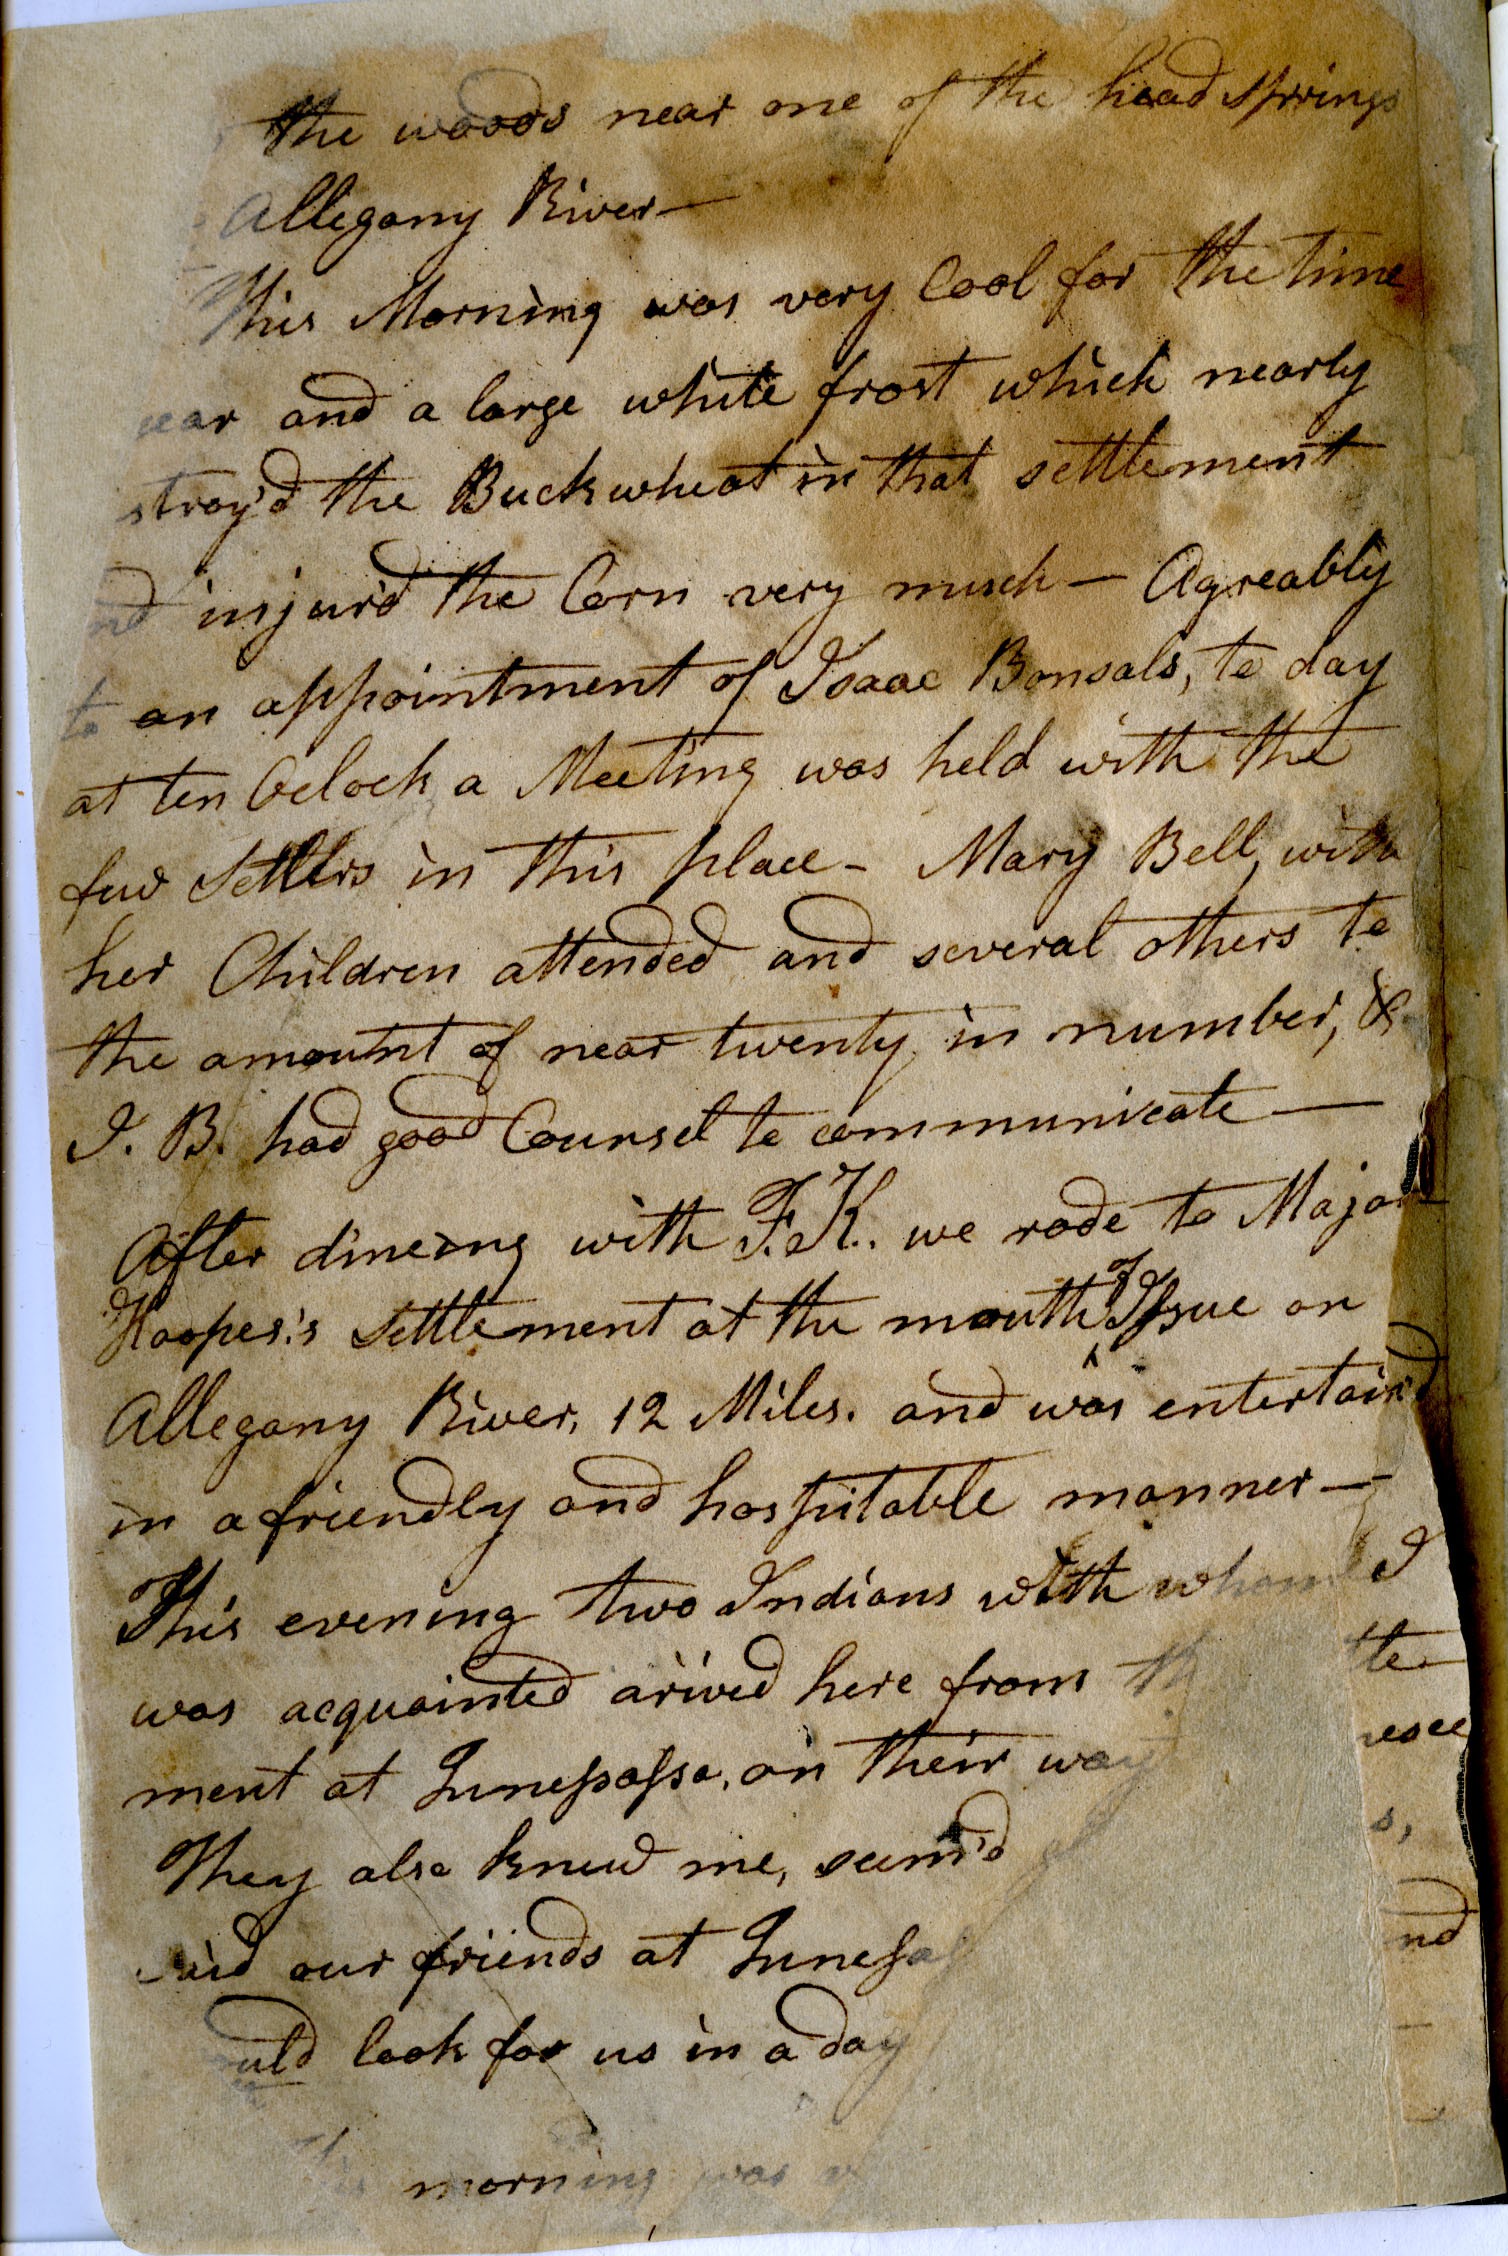 the woods near one of the head springs
Allegany River—
This Morning was very Cool for the time
year and a large white frost which nearly
stroy'd the Buckwheat in that settlement
nd injur'd the Corn very much — Agreably
to an appointment of Isaac Bonsals, to day
at ten Oclock a Meeting was held with the
few Settlers in this place – Mary Bell, with
her Children attended and several others to
the amount of near twenty in number, &
I. B. had good Counsel to communicate —
After dineing with F. K. we rode to Major
Hoopes's Settlement at the mouth of Issue on
Allegany River, 12 Miles. and was entertain'd
in a friendly and hospitable manner —
This evening two Indians with whom I
was acquainted arived here from th
ment at Tunessassa, on their way
They also knew me, seem'd
said our friends at Tunessa
ould look for us in a day
morning was
te
s,
nd